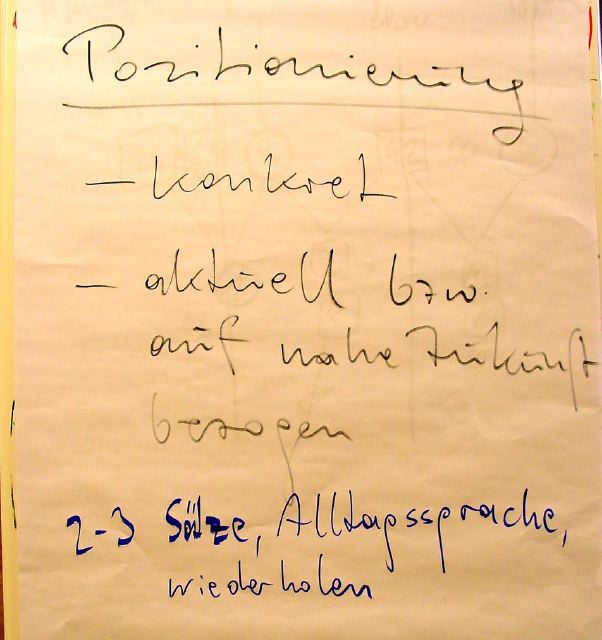 Positionierung
– konkret
– aktuell bzw.
auf nahe Zukunft
bezogen
2-3 Sätze, Alltagssprache,
wiederholen